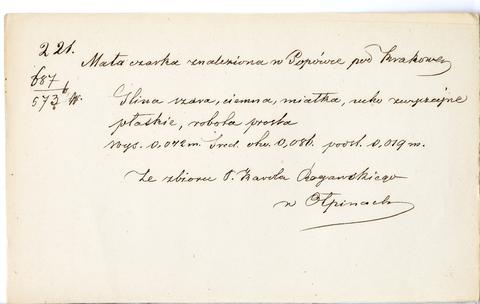 221.
Mała czarka znaleziona w Popówce pod Krakowem
687
573 b W.
Glina szara, ciemna, miałka, ucho zwyczajne
płaskie, robota prosta
wys. 0,042 m. Śred. otw. 0,086. podst. 0,019 m.
Ze zbioru P. Karola Rogawskiego
w Ołpinach